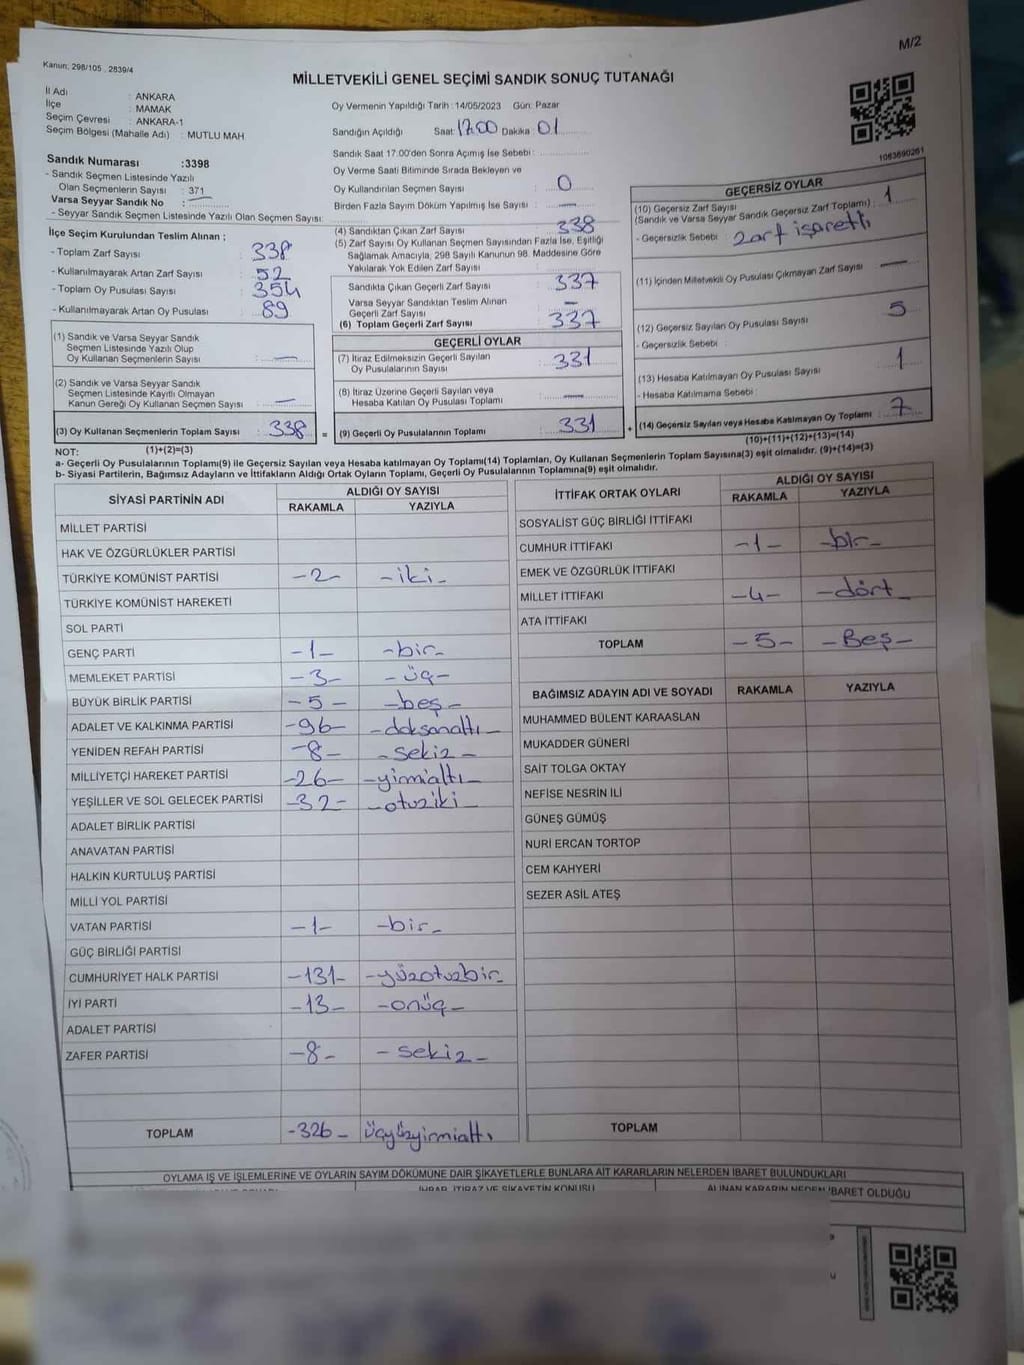 M/2
Kanun: 298/105 , 2839/4
MİLLETVEKİLİ GENEL SEÇİMİ SANDIK SONUÇ TUTANAĞI
İl Adı : ANKARA
İlçe : MAMAK
Seçim Çevresi : ANKARA-1
Seçim Bölgesi (Mahalle Adı) : MUTLU MAH.
Oy Vermenin Yapıldığı Tarih : 14/05/2023 Gün: Pazar
Sandığın Açıldığı Saat: 17.00 Dakika : 01
Sandık Saat 17:00'den Sonra Açımış İse Sebebi :
Oy Verme Saati Bitiminde Sırada Bekleyen ve
Oy Kullandırılan Seçmen Sayısı : 0
Birden Fazla Sayım Döküm Yapılmış İse Sayısı : —
1083690261
Sandık Numarası :3398
- Sandık Seçmen Listesinde Yazılı
Olan Seçmenlerin Sayısı : 371
Varsa Seyyar Sandık No : —
- Seyyar Sandık Seçmen Listesinde Yazılı Olan Seçmen Sayısı:
İlçe Seçim Kurulundan Teslim Alınan ;
- Toplam Zarf Sayısı : 338
- Kullanılmayarak Artan Zarf Sayısı : 52
- Toplam Oy Pusulası Sayısı : 354
- Kullanılmayarak Artan Oy Pusulası : 89
(1) Sandık ve Varsa Seyyar Sandık
Seçmen Listesinde Yazılı Olup
Oy Kullanan Seçmenlerin Sayısı : —
(2) Sandık ve Varsa Seyyar Sandık
Seçmen Listesinde Kayıtlı Olmayan
Kanun Gereği Oy Kullanan Seçmen Sayısı : —
(3) Oy Kullanan Seçmenlerin Toplam Sayısı : 338 =
(4) Sandıktan Çıkan Zarf Sayısı : 338
(5) Zarf Sayısı Oy Kullanan Seçmen Sayısından Fazla İse, Eşitliği
Sağlamak Amacıyla, 298 Sayılı Kanunun 98. Maddesine Göre
Yakılarak Yok Edilen Zarf Sayısı :
Sandıkta Çıkan Geçerli Zarf Sayısı : 337
Varsa Seyyar Sandıktan Teslim Alınan
Geçerli Zarf Sayısı : —
(6) Toplam Geçerli Zarf Sayısı : 337
GEÇERLİ OYLAR
(7) İtiraz Edilmeksizin Geçerli Sayılan
Oy Pusulalarının Sayısı : 331
(8) İtiraz Üzerine Geçerli Sayılan veya
Hesaba Katılan Oy Pusulası Toplamı : —
(9) Geçerli Oy Pusulalarının Toplamı : 331 +
GEÇERSİZ OYLAR
(10) Geçersiz Zarf Sayısı
(Sandık ve Varsa Seyyar Sandık Geçersiz Zarf Toplamı) : 1
- Geçersizlik Sebebi : zarf işaretli
(11) İçinden Milletvekili Oy Pusulası Çıkmayan Zarf Sayısı —
(12) Geçersiz Sayılan Oy Pusulası Sayısı : 5
- Geçersizlik Sebebi :
(13) Hesaba Katılmayan Oy Pusulası Sayısı : 1
- Hesaba Katılmama Sebebi :
(14) Geçersiz Sayılan veya Hesaba Katılmayan Oy Toplamı : 7
NOT: (1)+(2)=(3)
(10)+(11)+(12)+(13)=(14)
a- Geçerli Oy Pusulalarının Toplamı(9) ile Geçersiz Sayılan veya Hesaba katılmayan Oy Toplamı(14) Toplamları, Oy Kullanan Seçmenlerin Toplam Sayısına(3) eşit olmalıdır. (9)+(14)=(3)
b- Siyasi Partilerin, Bağımsız Adayların ve İttifakların Aldığı Ortak Oyların Toplamı, Geçerli Oy Pusulalarının Toplamına(9) eşit olmalıdır.
SİYASİ PARTİNİN ADI ALDIĞI OY SAYISI
RAKAMLA YAZIYLA
MİLLET PARTİSİ
HAK VE ÖZGÜRLÜKLER PARTİSİ
TÜRKİYE KOMÜNİST PARTİSİ -2- -iki-
TÜRKİYE KOMÜNİST HAREKETİ
SOL PARTİ
GENÇ PARTİ -1- -bir-
MEMLEKET PARTİSİ -3- -üç-
BÜYÜK BİRLİK PARTİSİ -5- -beş-
ADALET VE KALKINMA PARTİSİ -96- -doksanaltı-
YENİDEN REFAH PARTİSİ -8- -sekiz-
MİLLİYETÇİ HAREKET PARTİSİ -26- -yirmialtı-
YEŞİLLER VE SOL GELECEK PARTİSİ -32- -otuziki-
ADALET BİRLİK PARTİSİ
ANAVATAN PARTİSİ
HALKIN KURTULUŞ PARTİSİ
MİLLİ YOL PARTİSİ
VATAN PARTİSİ -1- -bir-
GÜÇ BİRLİĞİ PARTİSİ
CUMHURİYET HALK PARTİSİ -131- -yüzotuzbir-
İYİ PARTİ -13- -onüç-
ADALET PARTİSİ
ZAFER PARTİSİ -8- -sekiz-
TOPLAM -326- üçyüzyirmialtı
İTTİFAK ORTAK OYLARI ALDIĞI OY SAYISI
RAKAMLA YAZIYLA
SOSYALİST GÜÇ BİRLİĞİ İTTİFAKI
CUMHUR İTTİFAKI -1- -bir-
EMEK VE ÖZGÜRLÜK İTTİFAKI
MİLLET İTTİFAKI -4- -dört-
ATA İTTİFAKI
TOPLAM -5- -Beş-
BAĞIMSIZ ADAYIN ADI VE SOYADI RAKAMLA YAZIYLA
MUHAMMED BÜLENT KARAASLAN
MUKADDER GÜNERİ
SAİT TOLGA OKTAY
NEFİSE NESRİN İLİ
GÜNEŞ GÜMÜŞ
NURİ ERCAN TORTOP
CEM KAHYERİ
SEZER ASİL ATEŞ
TOPLAM
OYLAMA İŞ VE İŞLEMLERİNE VE OYLARIN SAYIM DÖKÜMÜNE DAİR ŞİKAYETLERLE BUNLARA AİT KARARLARIN NELERDEN İBARET BULUNDUKLARI
İHBAR, İTİRAZ VE ŞİKAYETİN KONUSU ALINAN KARARIN NEDEN İBARET OLDUĞU